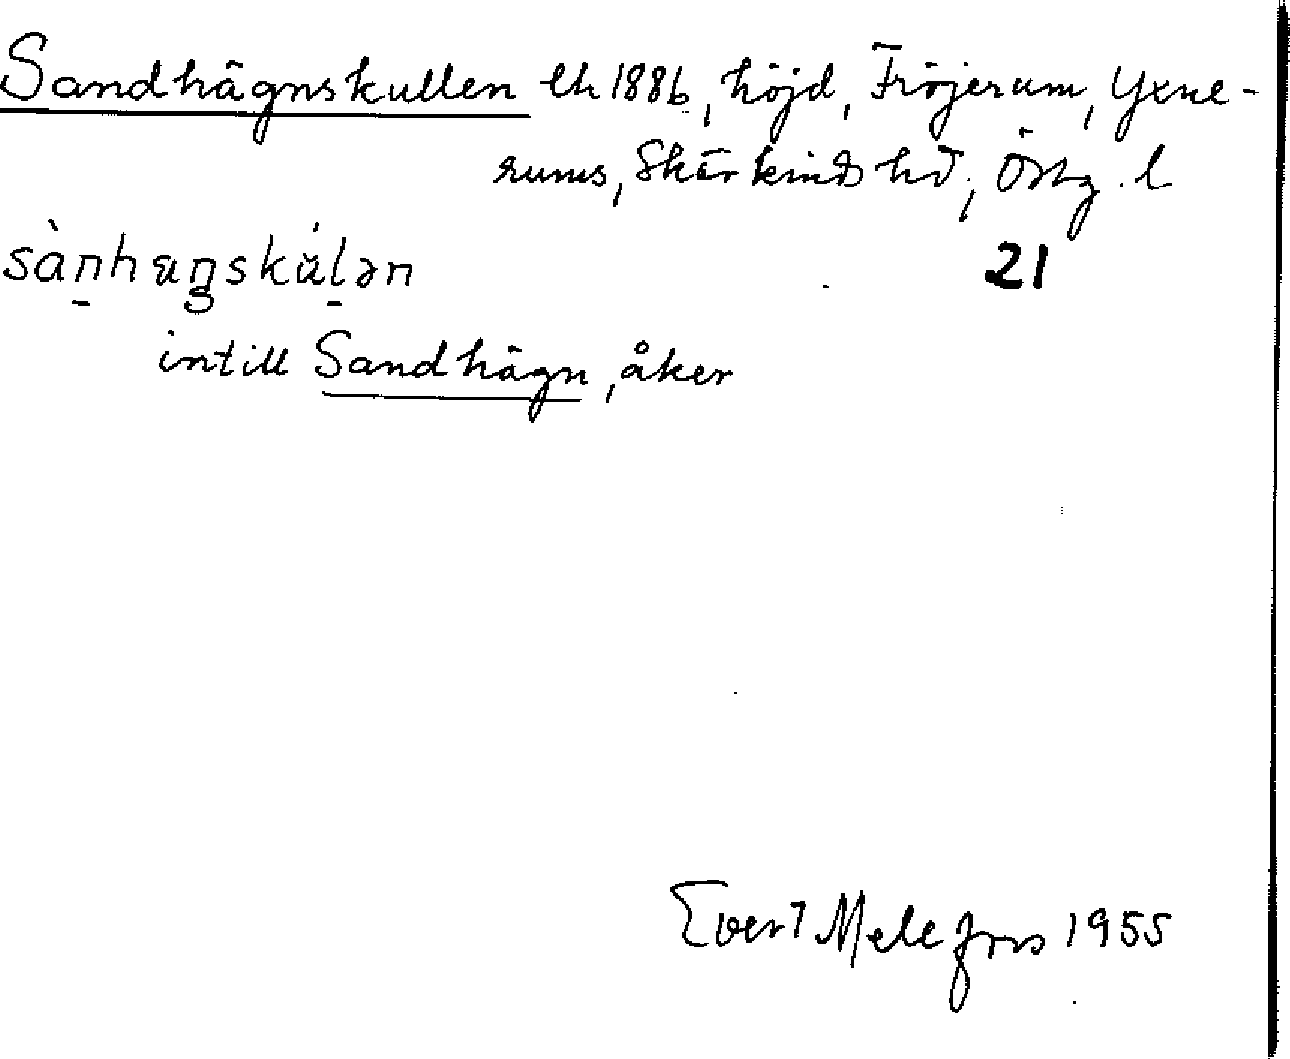 Sandhägnskullen lh 1886, höjd, Fröjerum, Yxne-
rums, Skärkinds hd, Östg. l
21
intill Sandhägn, åker
Evert Melefors 1955